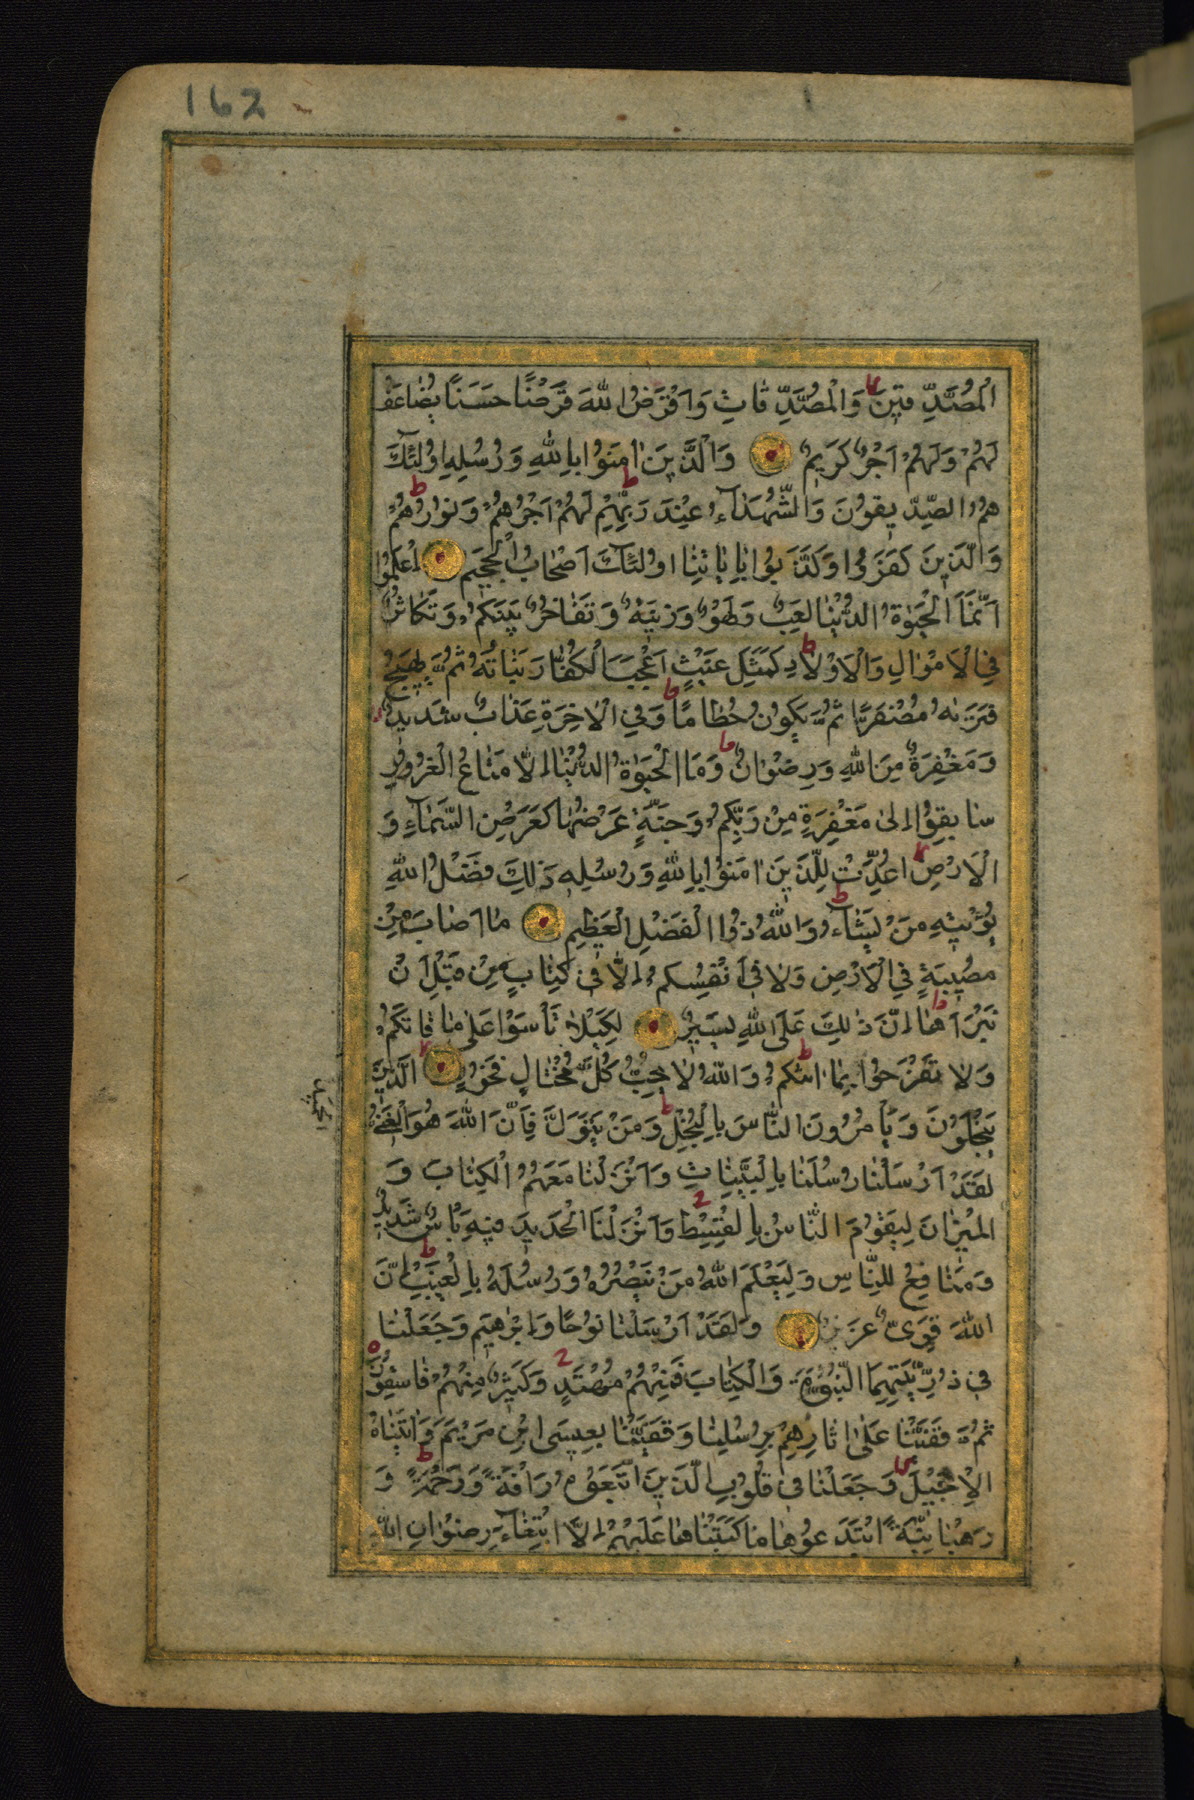 162
الْمُصَّدِّقِينَ وَالْمُصَّدِّقَاتِ وَاَقْرَضُوا اللهَ قَرْضًا حَسَنًا يُضَاعَفُ
لَهُمْ وَلَهُمْ اَجْرٌ كَرِيمٌ وَالَّذِينَ اٰمَنُوا بِاللهِ وَرُسُلِهِ اُولٰئِكَ
هُمُ الصِّدِّيقُونَ وَالشُّهَدَاءُ عِنْدَ رَبِّهِمْ لَهُمْ اَجْرُهُمْ وَنُورُهُمْ
وَالَّذِينَ كَفَرُوا وَكَذَّبُوا بِاٰيَاتِنَا اُولٰئِكَ اَصْحَابُ الْجَحِيمِ اِعْلَمُوا
اَنَّمَا الْحَيٰوةُ الدُّنْيَا لَعِبٌ وَلَهْوٌ وَزِينَةٌ وَتَفَاخُرٌ بَيْنَكُمْ وَتَكَاثُرٌ
فِي الْاَمْوَالِ وَالْاَوْلَادِ كَمَثَلِ غَيْثٍ اَعْجَبَ الْكُفَّارَ نَبَاتُهُ ثُمَّ يَهِيجُ
فَتَرٰيهُ مُصْفَرًّا ثُمَّ يَكُونُ حُطَامًا وَفِي الْاٰخِرَةِ عَذَابٌ شَدِيدٌ
وَمَغْفِرَةٌ مِنَ اللهِ وَرِضْوَانٌ وَمَا الْحَيٰوةُ الدُّنْيَا اِلَّا مَتَاعُ الْغُرُورِ
سَابِقُوا اِلٰى مَغْفِرَةٍ مِنْ رَبِّكُمْ وَجَنَّةٍ عَرْضُهَا كَعَرْضِ السَّمَاءِ وَ
الْاَرْضِ اُعِدَّتْ لِلَّذِينَ اٰمَنُوا بِاللهِ وَرُسُلِهِ ذٰلِكَ فَضْلُ اللهِ
يُؤْتِيهِ مَنْ يَشَاءُ وَاللهُ ذُوا الْفَضْلِ الْعَظِيمِ مَا اَصَابَ مِنْ
مُصِيبَةٍ فِي الْاَرْضِ وَلَا فِي اَنْفُسِكُمْ اِلَّا فِي كِتَابٍ مِنْ قَبْلِ اَنْ
نَبْرَاَهَا اِنَّ ذٰلِكَ عَلَى اللهِ يَسِيرٌ لِكَيْلَا تَأْسَوْا عَلٰى مَا فَاتَكُمْ
وَلَا تَفْرَحُوا بِمَا اٰتٰيكُمْ وَاللهُ لَا يُحِبُّ كُلَّ مُخْتَالٍ فَخُورٍ الَّذِينَ
يَبْخَلُونَ وَيَأْمُرُونَ النَّاسَ بِالْبُخْلِ وَمَنْ يَتَوَلَّ فَاِنَّ اللهَ هُوَ الْغَنِيُّ
الْحَمِيدُ
لَقَدْ اَرْسَلْنَا رُسُلَنَا بِالْبَيِّنَاتِ وَاَنْزَلْنَا مَعَهُمُ الْكِتَابَ وَ
الْمِيزَانَ لِيَقُومَ النَّاسُ بِالْقِسْطِ وَاَنْزَلْنَا الْحَدِيدَ فِيهِ بَأْسٌ شَدِيدٌ
وَمَنَافِعُ لِلنَّاسِ وَلِيَعْلَمَ اللهُ مَنْ يَنْصُرُهُ وَرُسُلَهُ بِالْغَيْبِ اِنَّ
اللهَ قَوِيٌّ عَزِيزٌ وَلَقَدْ اَرْسَلْنَا نُوحًا وَاِبْرٰهِيمَ وَجَعَلْنَا
فِي ذُرِّيَّتِهِمَا النُّبُوَّةَ وَالْكِتَابَ فَمِنْهُمْ مُهْتَدٍ وَكَثِيرٌ مِنْهُمْ فَاسِقُونَ
ثُمَّ قَفَّيْنَا عَلٰى اٰثَارِهِمْ بِرُسُلِنَا وَقَفَّيْنَا بِعِيسَى ابْنِ مَرْيَمَ وَاٰتَيْنَاهُ
الْاِنْجِيلَ وَجَعَلْنَا فِي قُلُوبِ الَّذِينَ اتَّبَعُوهُ رَاْفَةً وَرَحْمَةً وَ
رَهْبَانِيَّةً ابْتَدَعُوهَا مَا كَتَبْنَاهَا عَلَيْهِمْ اِلَّا ابْتِغَاءَ رِضْوَانِ اللهِ